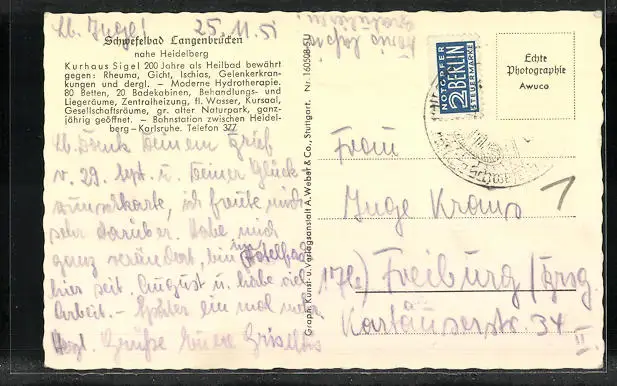 Lb. Inge! 25. 11. 51
Schwefelbad Langenbrücken
nahe Heidelberg
Kurhaus Sigel 200 Jahre als Heilbad bewährt
gegen: Rheuma, Gicht, Ischias, Gelenkerkran-
kungen und dergl. — Moderne Hydrotherapie.
80 Betten, 20 Badekabinen, Behandlungs- und
Liegeräume, Zentralheizung, fl. Wasser, Kursaal,
Gesellschaftsräume, gr. alter Naturpark, ganz-
jährig geöffnet. — Bahnstation zwischen Heidel-
berg—Karlsruhe. Telefon 377
Lb. Dank Deinem Brief
v. 29. Sept. u. Deiner Glück
wunschkarte, ich freute mich
sehr darüber. Habe mich
ganz verändert, bin im Hotelfach
hier seit August u. habe viel
Arbeit. - Später ein mal mehr
Herzl. Grüße Deine
Graph. Kunst- u. Verlagsanstalt A. Weber & Co., Stuttgart. Nr. 160508-SU
NOTOPFER
2 BERLIN
STEUERMARKE
Echte
Photographie
Awuco
Frau
Inge Kraus
17b) Freiburg/Brsg.
Kartäuserstr. 34
III
1